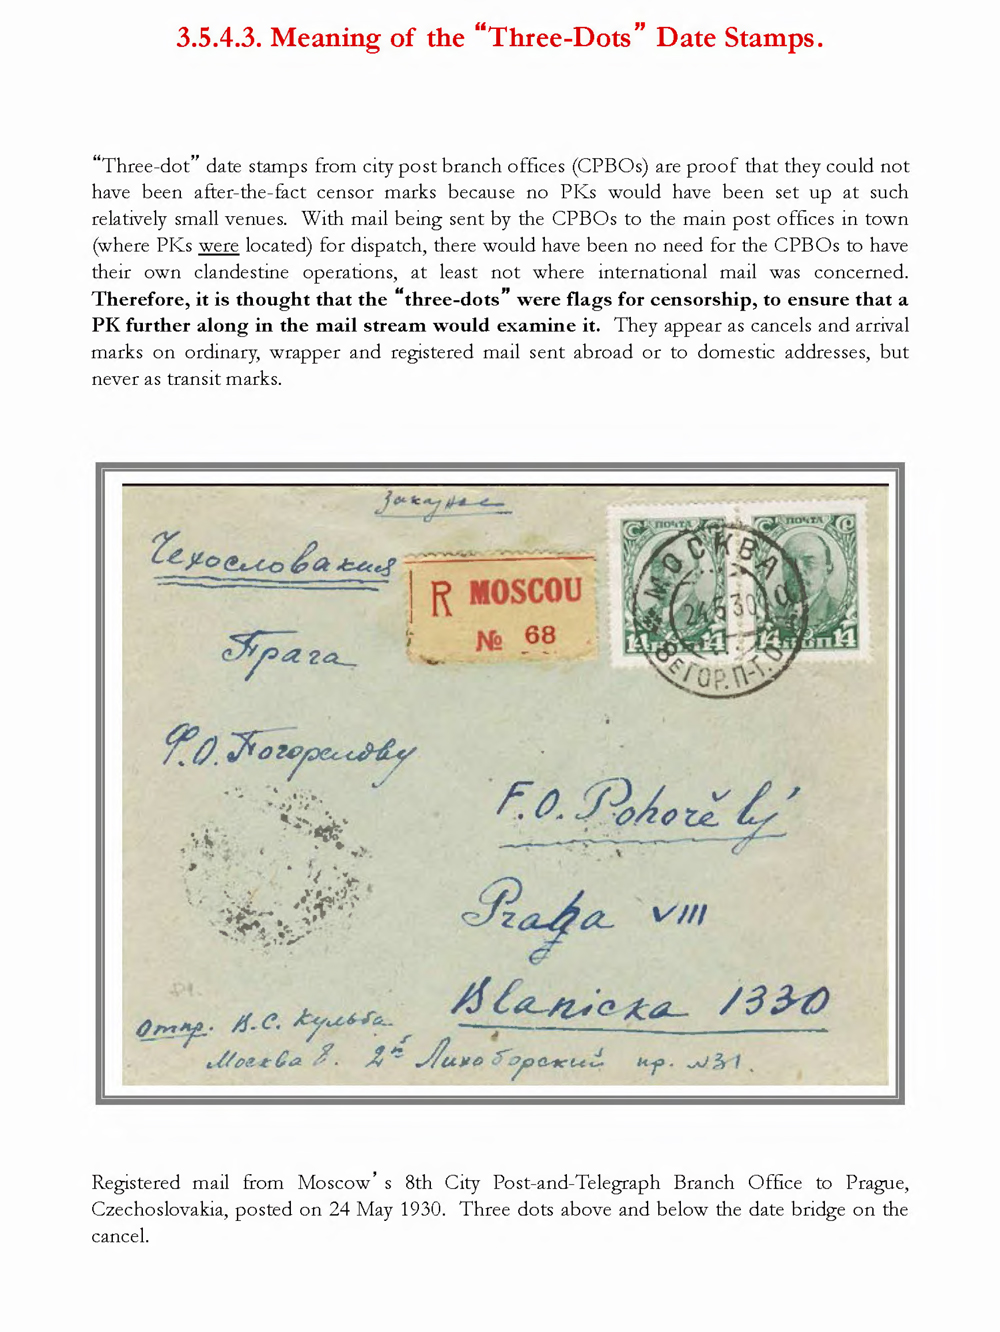 3.5.4.3. Meaning of the “Three-Dots” Date Stamps.
“Three-dot” date stamps from city post branch offices (CPBOs) are proof that they could not
have been after-the-fact censor marks because no PKs would have been set up at such
relatively small venues. With mail being sent by the CPBOs to the main post offices in town
(where PKs were located) for dispatch, there would have been no need for the CPBOs to have
their own clandestine operations, at least not where international mail was concerned.
Therefore, it is thought that the “three-dots” were flags for censorship, to ensure that a
PK further along in the mail stream would examine it. They appear as cancels and arrival
marks on ordinary, wrapper and registered mail sent abroad or to domestic addresses, but
never as transit marks.
Заказное
Чехословакия
R MOSCOU
№ 68
ПОЧТА
ПОЧТА
14
14
14
14
МОСКВА
24 5 30
8 ГОР. П-Т.О
Прага
Ф.О. Погорелову
F.O. Pohořělý
Praha VIII
Blanicka 1330
Отпр. В.С. Кульба
Москва 8. 2й Лихоборский пр. №31.
Registered mail from Moscow’s 8th City Post-and-Telegraph Branch Office to Prague,
Czechoslovakia, posted on 24 May 1930. Three dots above and below the date bridge on the
cancel.